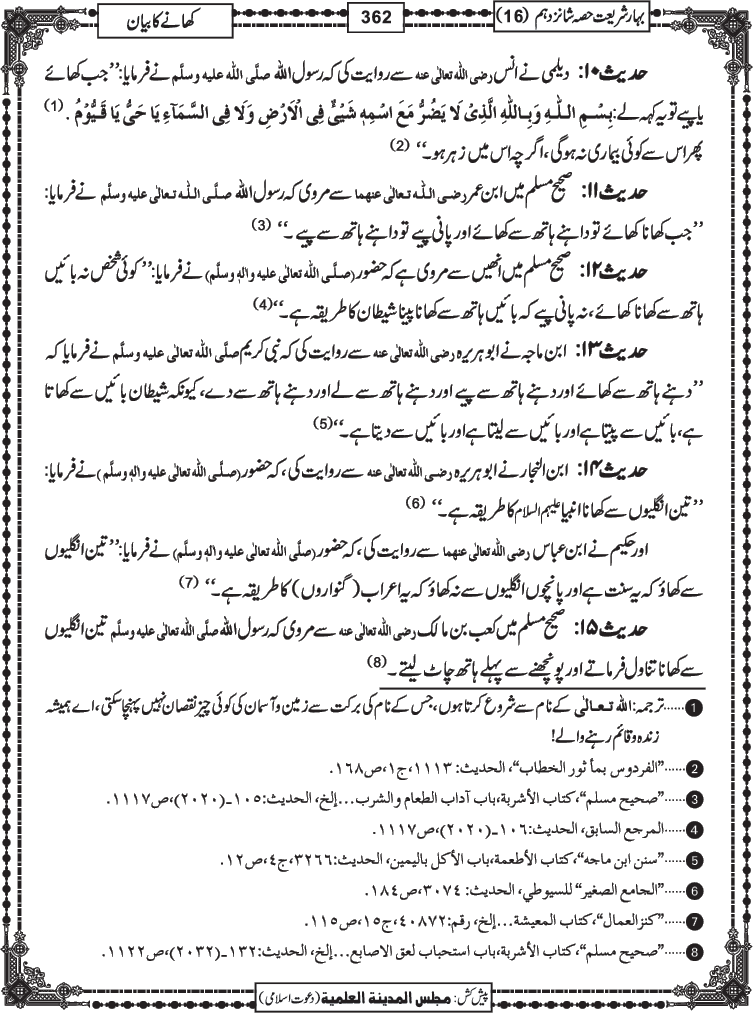 بہار شریعت حصہ شانزدہم (16)
362
کھانے کا بیان
حدیث ۱۰: دیلمی نے انس رضی اللہ تعالٰی عنہ سے روایت کی کہ رسول اللہ صلَّی اللہ علیہ وسلَّم نے فرمایا: ’’جب کھائے
یا پیے تو یہ کہہ لے: بِسْمِ اللّٰهِ وَبِاللّٰهِ الَّذِيْ لَا يَضُرُّ مَعَ اسْمِهٖ شَيْئٌ فِي الْاَرْضِ وَلَا فِي السَّمَآءِ يَا حَيُّ يَا قَيُّوْمُ . (1)
پھر اس سے کوئی بیماری نہ ہوگی، اگرچہ اس میں زہر ہو۔‘‘ (2)
حدیث ۱۱: صحیح مسلم میں ابن عمر رضی اللہ تعالٰی عنهما سے مروی کہ رسول اللہ صلَّی اللہ تعالٰی علیہ وسلَّم نے فرمایا:
’’جب کھانا کھائے تو داہنے ہاتھ سے کھائے اور پانی پیے تو داہنے ہاتھ سے پیے۔‘‘ (3)
حدیث ۱۲: صحیح مسلم میں انھیں سے مروی ہے کہ حضور (صلَّی اللہ تعالٰی علیہ واٰلہٖ وسلَّم) نے فرمایا: ’’کوئی شخص نہ بائیں
ہاتھ سے کھانا کھائے، نہ پانی پیے کہ بائیں ہاتھ سے کھانا پینا شیطان کا طریقہ ہے۔‘‘ (4)
حدیث ۱۳: ابن ماجہ نے ابوہریرہ رضی اللہ تعالٰی عنہ سے روایت کی کہ نبی کریم صلَّی اللہ تعالٰی علیہ وسلَّم نے فرمایا کہ
’’دہنے ہاتھ سے کھائے اور دہنے ہاتھ سے پیے اور دہنے ہاتھ سے لے اور دہنے ہاتھ سے دے، کیونکہ شیطان بائیں سے کھاتا
ہے، بائیں سے پیتا ہے اور بائیں سے لیتا ہے اور بائیں سے دیتا ہے۔‘‘ (5)
حدیث ۱۴: ابن النجار نے ابوہریرہ رضی اللہ تعالٰی عنہ سے روایت کی، کہ حضور (صلَّی اللہ تعالٰی علیہ واٰلہٖ وسلَّم) نے فرمایا:
’’تین انگلیوں سے کھانا انبیا علیہم السلام کا طریقہ ہے۔‘‘ (6)
اور حکیم نے ابن عباس رضی اللہ تعالٰی عنهما سے روایت کی، کہ حضور (صلَّی اللہ تعالٰی علیہ واٰلہٖ وسلَّم) نے فرمایا: ’’تین انگلیوں
سے کھاؤ کہ یہ سنت ہے اور پانچوں انگلیوں سے نہ کھاؤ کہ یہ اعراب (گنواروں) کا طریقہ ہے۔‘‘ (7)
حدیث ۱۵: صحیح مسلم میں کعب بن مالک رضی اللہ تعالٰی عنہ سے مروی کہ رسول اللہ صلَّی اللہ تعالٰی علیہ وسلَّم تین انگلیوں
سے کھانا تناول فرماتے اور پونچھنے سے پہلے ہاتھ چاٹ لیتے۔ (8)
1 ......ترجمہ: اللہ تعالٰی کے نام سے شروع کرتا ہوں، جس کے نام کی برکت سے زمین و آسمان کی کوئی چیز نقصان نہیں پہنچا سکتی، اے ہمیشہ
زندہ و قائم رہنے والے!
2 ......’’الفردوس بمأثور الخطاب‘‘، الحدیث: ۱۱۱۳، ج۱، ص۱۶۸.
3 ......’’صحیح مسلم‘‘، کتاب الأشربة، باب آداب الطعام والشرب...إلخ، الحدیث: ۱۰۵ـ(۲۰۲۰)، ص۱۱۱۷.
4 ......المرجع السابق، الحدیث: ۱۰۶ـ(۲۰۲۰)، ص۱۱۱۷.
5 ......’’سنن ابن ماجه‘‘، کتاب الأطعمة، باب الأکل بالیمین، الحدیث: ۳۲۶۶، ج۴، ص۱۲.
6 ......’’الجامع الصغیر‘‘ للسیوطي، الحدیث: ۳۰۷۴، ص۱۸۴.
7 ......’’کنزالعمال‘‘، کتاب المعیشة...إلخ، رقم: ۴۰۸۷۲، ج۱۵، ص۱۱۵.
8 ......’’صحیح مسلم‘‘، کتاب الأشربة، باب استحباب لعق الاصابع...إلخ، الحدیث: ۱۳۲ـ(۲۰۳۲)، ص۱۱۲۲.
پیش کش: مجلس المدینة العلمیة (دعوت اسلامی)